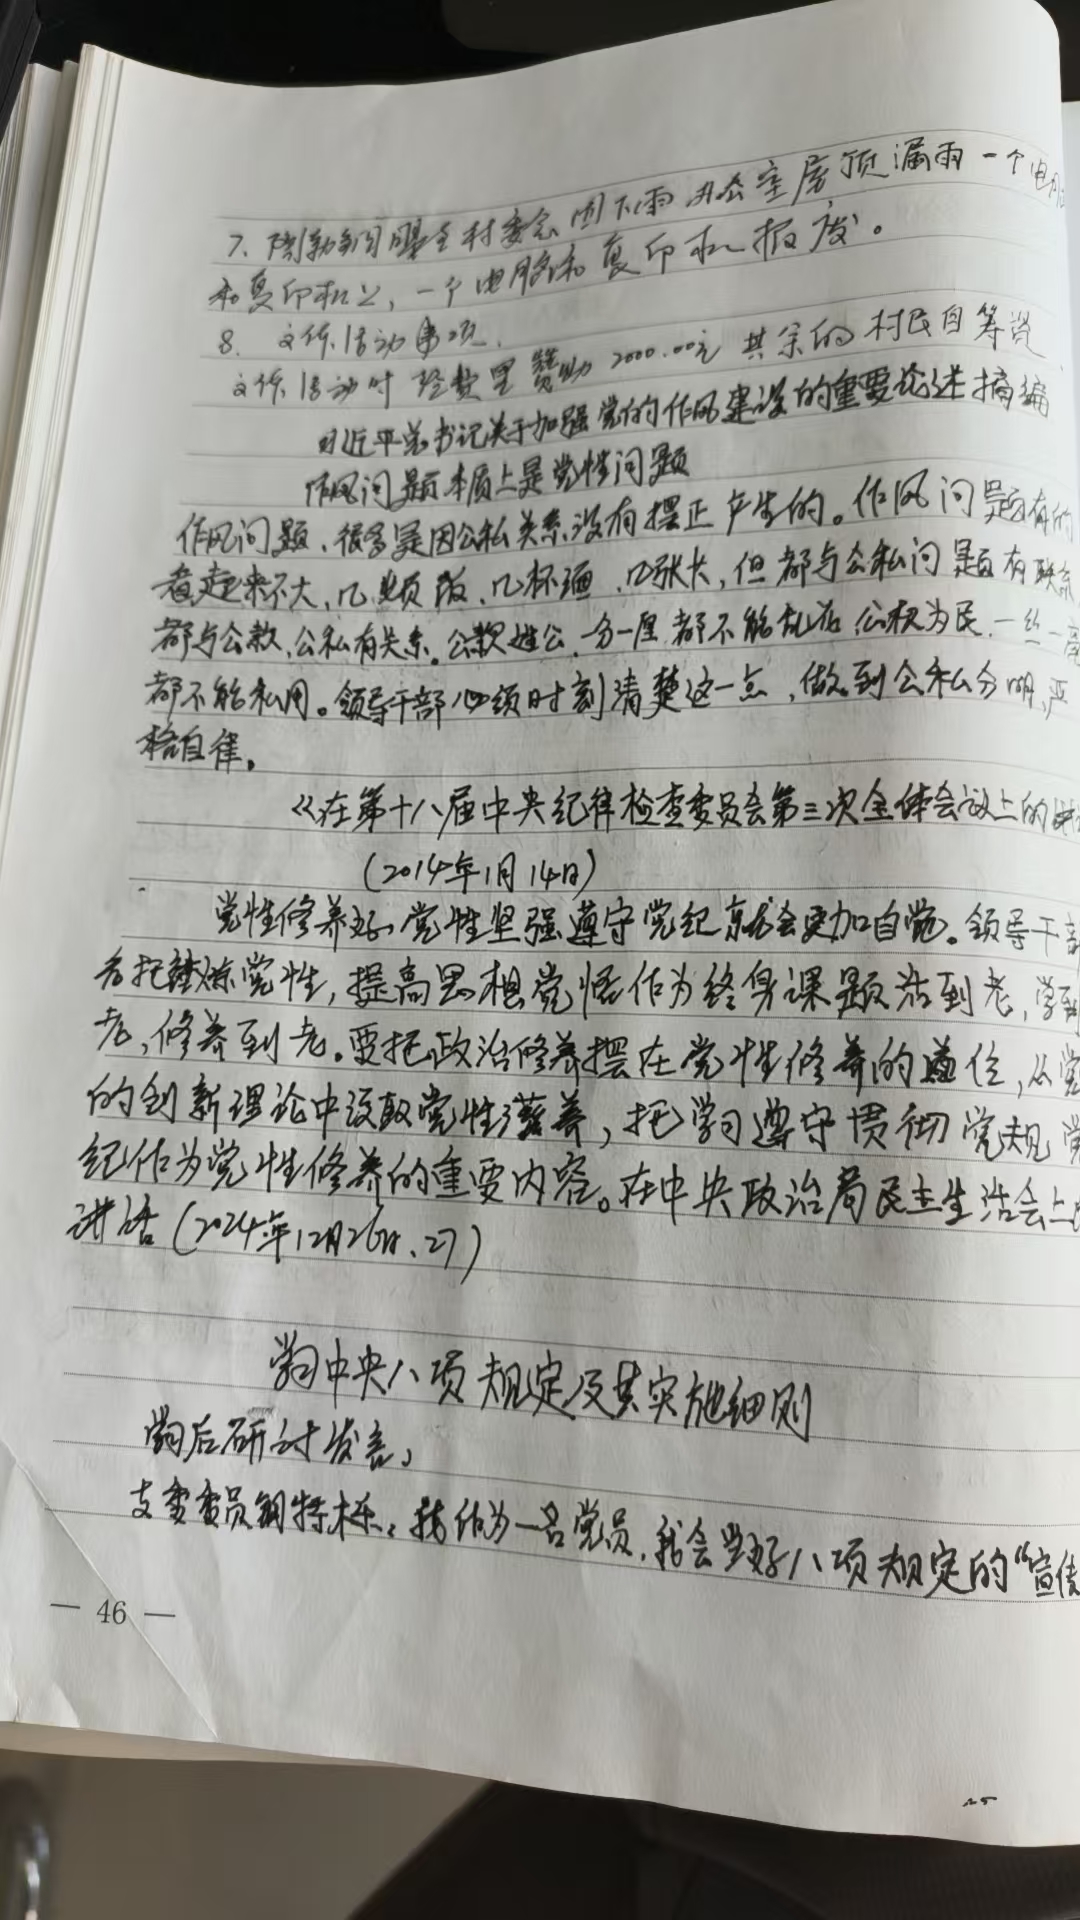 7、 村委会因下雨办公室房顶漏雨一个电脑
和复印机上，一个电脑和复印机报废。
8、文体活动事项.
文体活动时经费里赞助2000.00元 其余的村民自筹资
习近平总书记关于加强党的作风建设的重要论述摘编
作风问题本质上是党性问题
作风问题、很多是因公私关系没有摆正产生的。作风问题有的
看起来不大、几顿饭、几杯酒、几张卡，但都与公私问题有联系
都与公款、公私有关系。公款姓公、一分一厘都不能乱花 公权为民、一丝一毫
都不能私用。领导干部必须时刻清楚这一点，做到公私分明、严
格自律。
《在第十八届中央纪律检查委员会第三次全体会议上的讲
(2014年1月14日)
党性修养好、党性坚强遵守党纪就会更加自觉。领导干部
者把锤炼党性，提高思想觉悟作为终身课题活到老，学到
老，修养到老。要把政治修养摆在党性修养的首位，从党
的创新理论中汲取党性滋养，把学习遵守贯彻党规党
纪作为党性修养的重要内容。在中央政治局民主生活会上的
讲话（2024年12月26日、27）
学习中央八项规定及其实施细则
学习后研讨发言，
支委委员 ：我作为一名党员，我会当好八项规定的“宣传
— 46 —